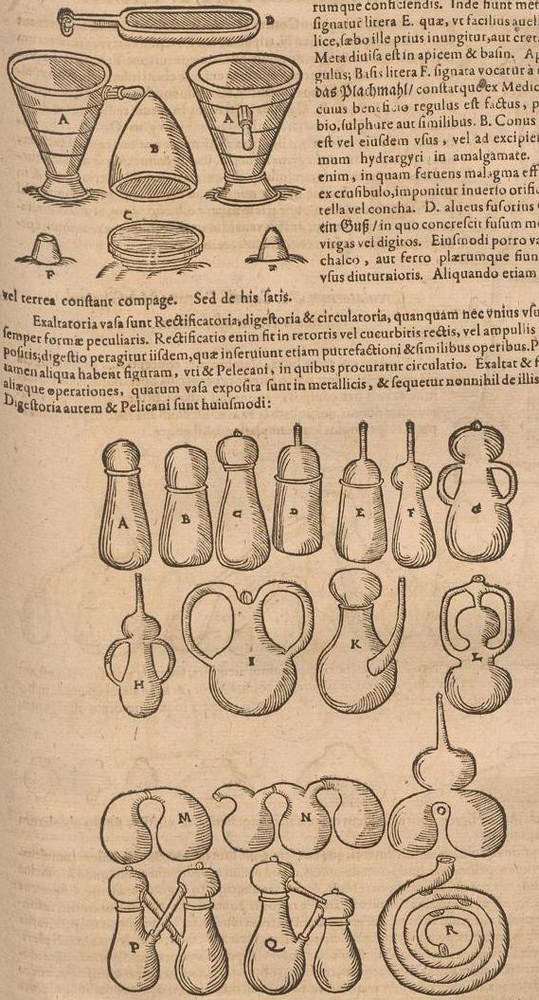 rumque conficiendis. Inde fiunt
signatur litera E. quæ, vt facilius
lice, sæbo ille prius inungitur, aut
Meta diuisa est in apicem & basin.
gulus; Basis litera F. signata vocatur à
das Plachmahl / constatque ex
cuius beneficio regulus est factus,
bio, sulphure aut similibus. B. Conus
est vel eiusdem vsus, vel ad
mum hydrargyri in amalgamate.
enim, in quam feruens malagma
ex crusibulo, imponitur inuerso
tella vel concha. D. alueus fusorius
ein Guß / in quo concrescit fusum
virgas vel digitos. Eiusmodi porro
chalco, aut ferro plærumque
vsus diuturnioris. Aliquando etiam
vel terrea constant compage. Sed de his satis.
Exaltatoria vasa sunt Rectificatoria, digestoria & circulatoria, quanquam nec vnius
semper formæ peculiaris. Rectificatio enim fit in retortis vel cucurbitis rectis, vel ampullis
positis; digestio peragitur iisdem, quæ inseruiunt etiam putrefactioni & similibus operibus.
tamen aliqua habent figuram, vti & Pelecani, in quibus procuratur circulatio. Exaltat &
aliæque operationes, quarum vasa exposita sunt in metallicis, & sequetur nonnihil de illis
Digestoria autem & Pelicani sunt huiusmodi:
D
A
A
B
C
F
E
A
B
C
D
E
F
G
H
I
K
L
M
N
O
P
Q
R